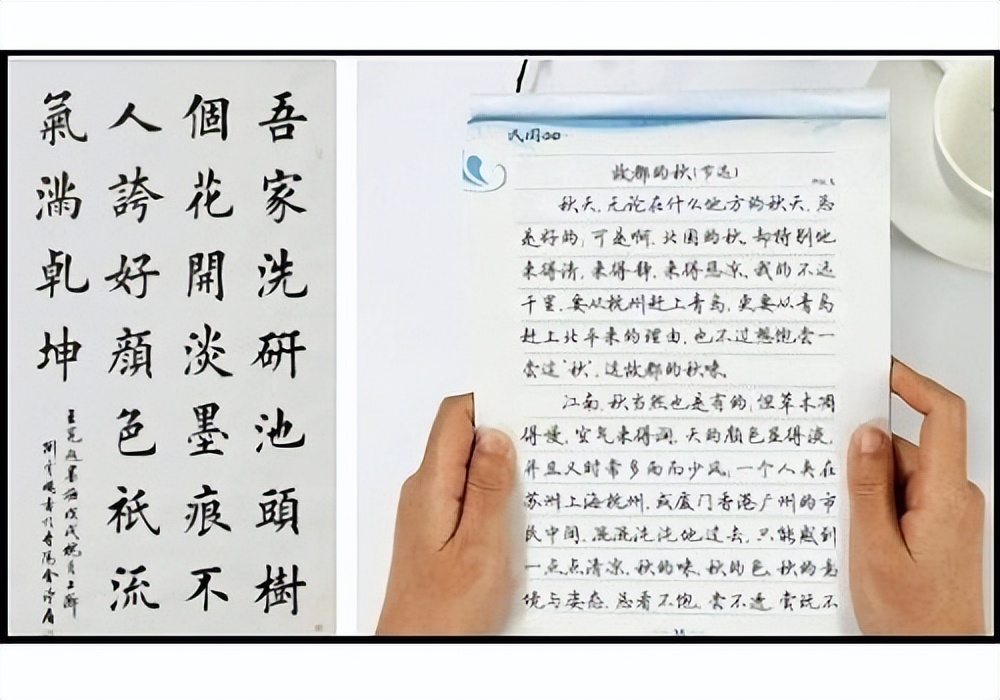 吾家洗研池頭樹
個花開淡墨痕不
人誇好顔色祇流
氣滿乹坤
王冕題墨梅戊戌桃月上澣
故都的秋(节选)
秋天,无论在什么地方的秋天,总
是好的;可是啊,北国的秋,却特别地
来得清,来得静,来得悲凉。我的不远
千里,要从杭州赶上青岛,更要从青岛
赶上北平来的理由,也不过想饱尝一
尝这“秋”,这故都的秋味。
江南,秋当然也是有的;但草木凋
得慢,空气来得润,天的颜色显得淡,
并且又时常多雨而少风;一个人夹在
苏州上海杭州,或厦门香港广州的市
民中间,混混沌沌地过去,只能感到
一点点清凉,秋的味,秋的色,秋的意
境与姿态,总看不饱,尝不透,赏玩不